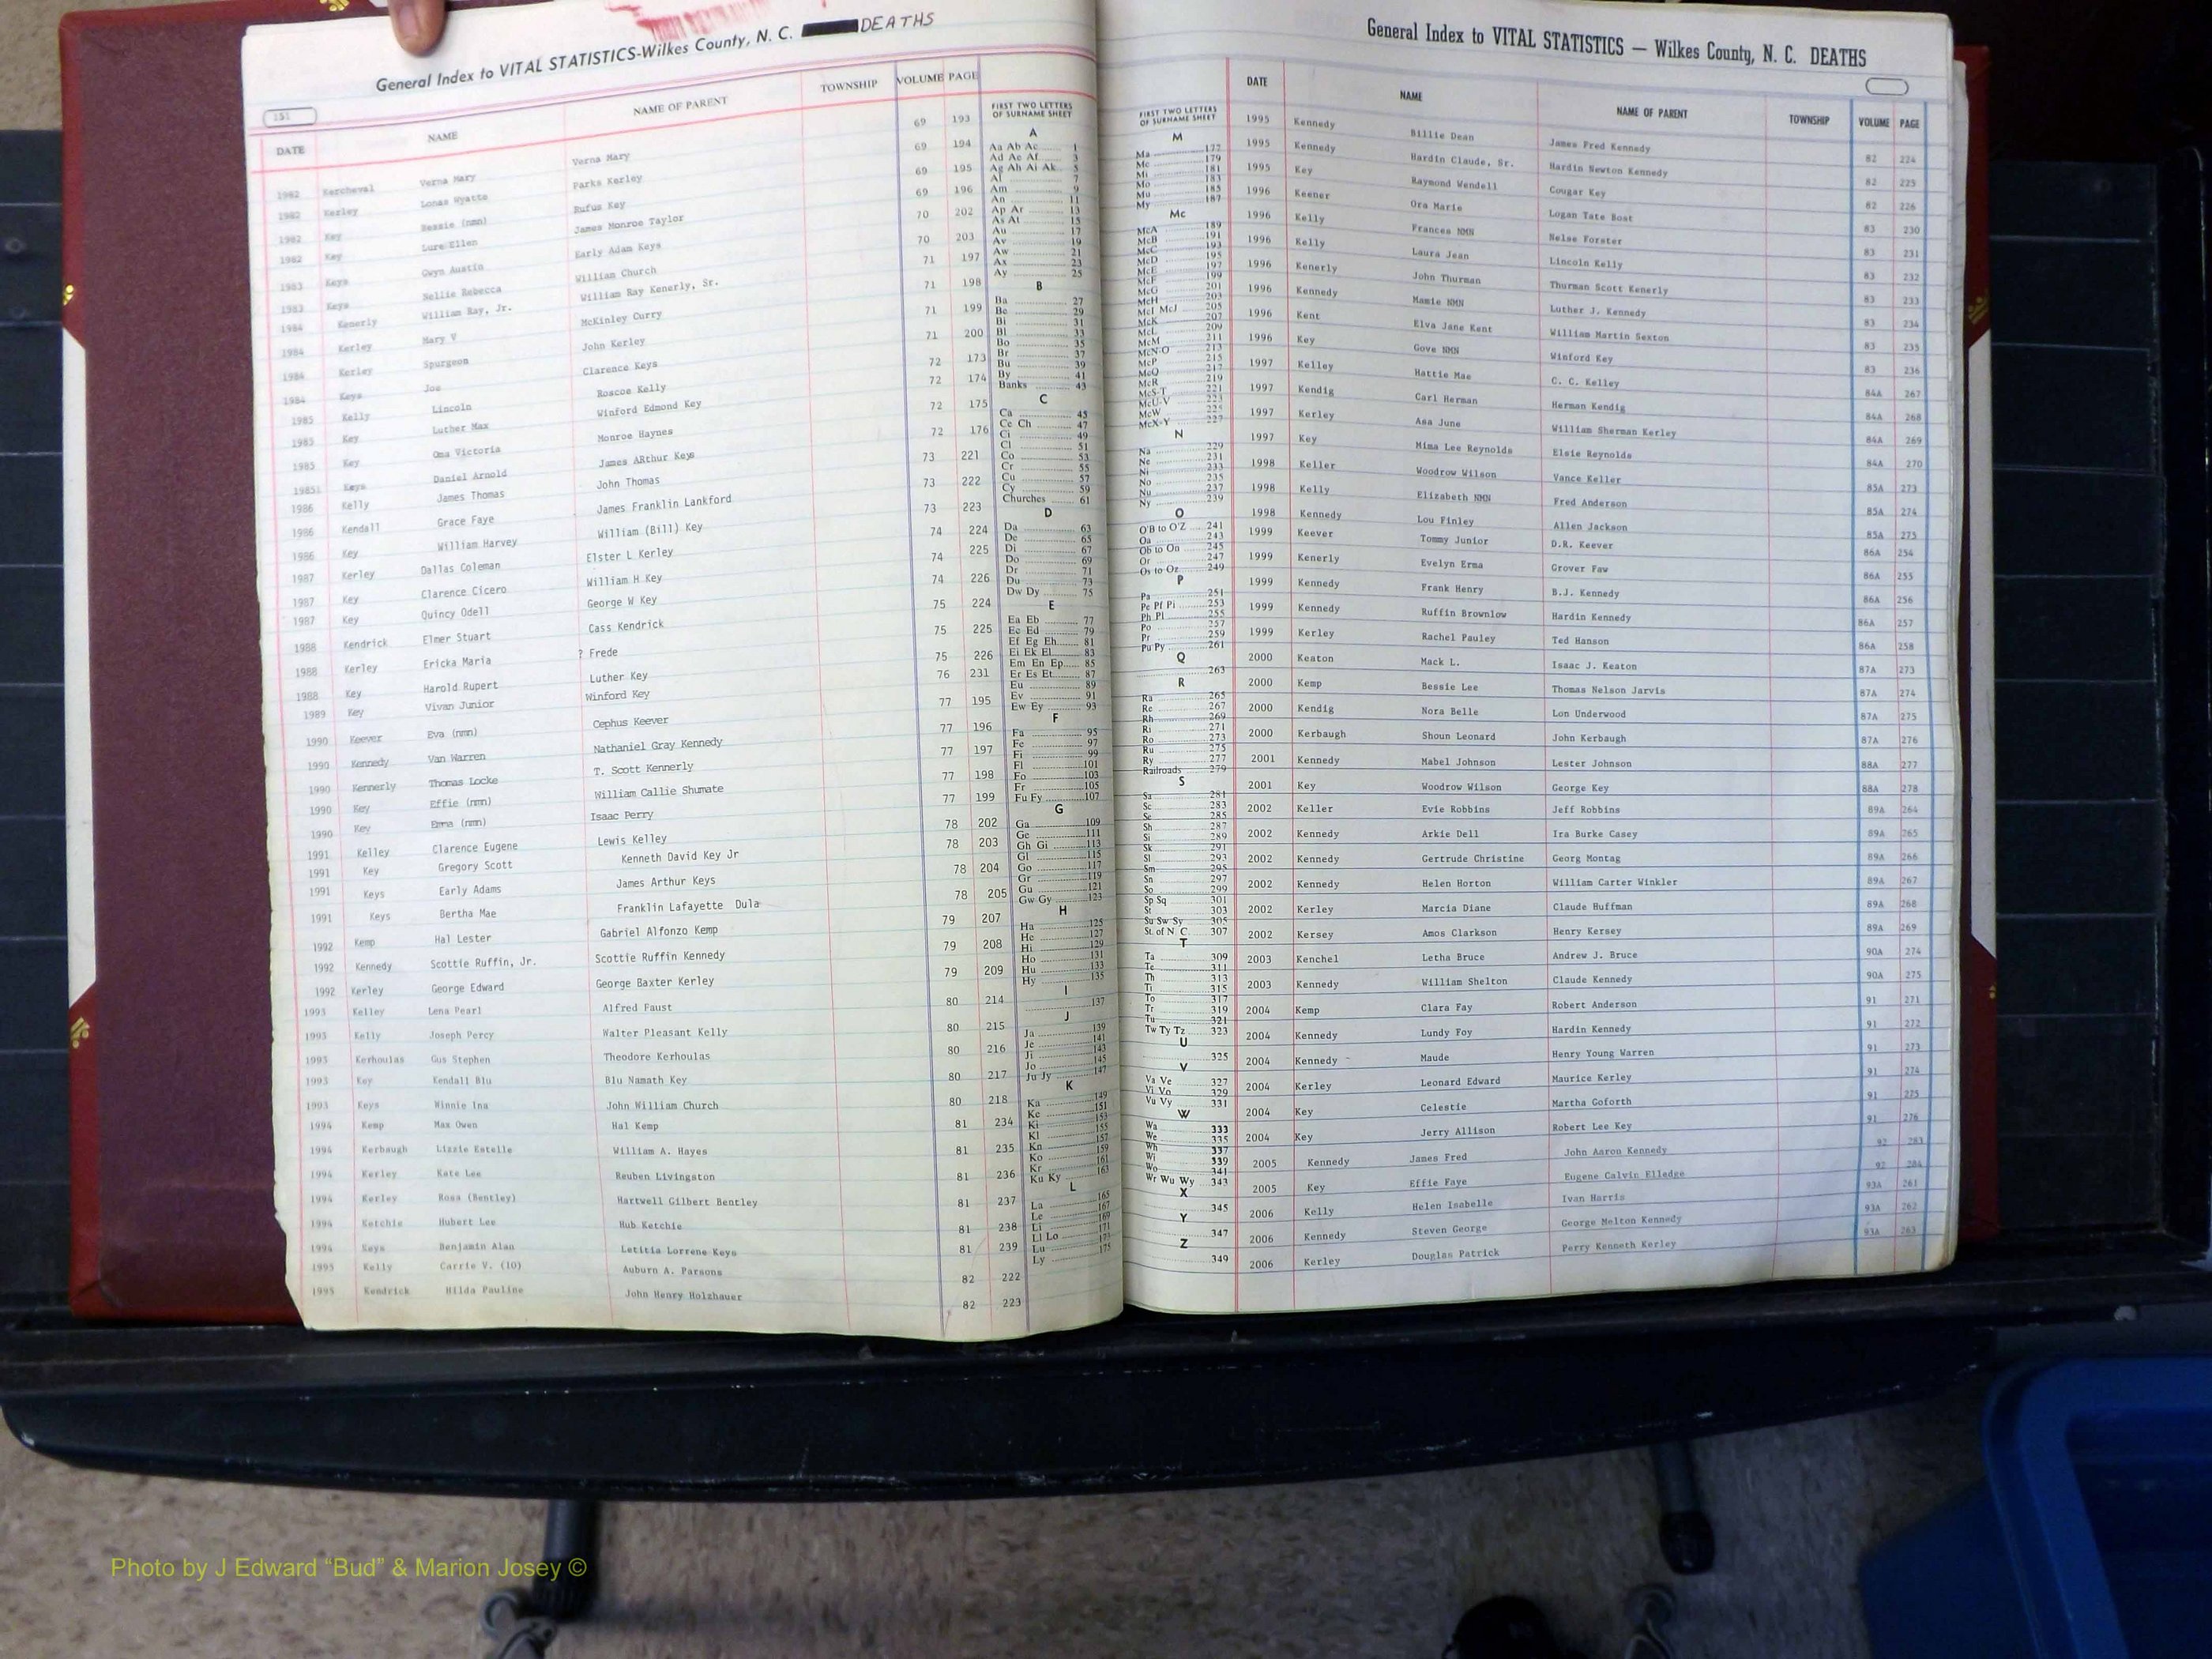 General Index to VITAL STATISTICS-Wilkes County, N. C. DEATHS
151
DATE NAME NAME OF PARENT TOWNSHIP VOLUME PAGE
1982 Kercheval Verna Mary Verna Mary 69 193
1982 Kerley Lonas Wyatte Parks Kerley 69 194
1982 Key Bessie (nmn) Rufus Key 69 195
1982 Key Lure Ellen James Monroe Taylor 69 196
1983 Keys Gwyn Austin Early Adam Keys 70 202
1983 Keys Nellie Rebecca William Church 70 203
1984 Kenerly William Ray, Jr. William Ray Kenerly, Sr. 71 197
1984 Kerley Mary V McKinley Curry 71 198
1984 Kerley Spurgeon John Kerley 71 199
1984 Keys Joe Clarence Keys 71 200
1985 Kelly Lincoln Roscoe Kelly 72 173
1985 Key Luther Max Winford Edmond Key 72 174
1985 Key Oma Victoria Monroe Haynes 72 175
1985 Keys Daniel Arnold James ARthur Keys 72 176
1986 Kelly James Thomas John Thomas 73 221
1986 Kendall Grace Faye James Franklin Lankford 73 222
1986 Key William Harvey William (Bill) Key 73 223
1987 Kerley Dallas Coleman Elster L Kerley 74 224
1987 Key Clarence Cicero William H Key 74 225
1987 Key Quincy Odell George W Key 74 226
1988 Kendrick Elmer Stuart Cass Kendrick 75 224
1988 Kerley Ericka Maria ? Frede 75 225
1988 Key Harold Rupert Luther Key 75 226
1989 Key Vivan Junior Winford Key 76 231
1990 Keever Eva (nmn) Cephus Keever 77 195
1990 Kennedy Van Warren Nathaniel Gray Kennedy 77 196
1990 Kennerly Thomas Locke T. Scott Kennerly 77 197
1990 Key Effie (nmn) William Callie Shumate 77 198
1990 Key Emma (nmn) Isaac Perry 77 199
1991 Kelley Clarence Eugene Lewis Kelley 78 202
1991 Key Gregory Scott Kenneth David Key Jr 78 203
1991 Keys Early Adams James Arthur Keys 78 204
1991 Keys Bertha Mae Franklin Lafayette Dula 78 205
1992 Kemp Hal Lester Gabriel Alfonzo Kemp 79 207
1992 Kennedy Scottie Ruffin, Jr. Scottie Ruffin Kennedy 79 208
1992 Kerley George Edward George Baxter Kerley 79 209
1993 Kelley Lena Pearl Alfred Faust 80 214
1993 Kelly Joseph Percy Walter Pleasant Kelly 80 215
1993 Kerhoulas Gus Stephen Theodore Kerhoulas 80 216
1993 Key Kendall Blu Blu Namath Key 80 217
1993 Keys Winnie Ina John William Church 80 218
1994 Kemp Max Owen Hal Kemp 81 234
1994 Kerbaugh Lizzie Estelle William A. Hayes 81 235
1994 Kerley Kate Lee Reuben Livingston 81 236
1994 Kerley Rosa (Bentley) Hartwell Gilbert Bentley 81 237
1994 Ketchie Hubert Lee Hub Ketchie 81 238
1994 Keys Benjamin Alan Letitia Lorrene Keys 81 239
1995 Kelly Carrie V. (10) Auburn A. Parsons 82 222
1995 Kendrick Hilda Pauline John Henry Holzhauer 82 223
FIRST TWO LETTERS
OF SURNAME SHEET
A
Aa Ab Ac 1
Ad Ae Af 3
Ag Ah Ai Ak 5
Al 7
Am 9
An 11
Ap Ar 13
As At 15
Au 17
Av 19
Aw 21
Ax 23
Ay 25
B
Ba 27
Be 29
Bi 31
Bl 33
Bo 35
Br 37
Bu 39
By 41
Banks 43
C
Ca 45
Ce Ch 47
Ci 49
Cl 51
Co 53
Cr 55
Cu 57
Cy 59
Churches 61
D
Da 63
De 65
Di 67
Do 69
Dr 71
Du 73
Dw Dy 75
E
Ea Eb 77
Ec Ed 79
Ef Eg Eh 81
Ei Ek El 83
Em En Ep 85
Er Es Et 87
Eu 89
Ev 91
Ew Ey 93
F
Fa 95
Fe 97
Fi 99
Fl 101
Fo 103
Fr 105
Fu Fy 107
G
Ga 109
Ge 111
Gh Gi 113
Gl 115
Go 117
Gr 119
Gu 121
Gw Gy 123
H
Ha 125
He 127
Hi 129
Ho 131
Hu 133
Hy 135
I
137
J
Ja 139
Je 141
Ji 143
Jo 145
Ju Jy 147
K
Ka 149
Ke 151
Ki 153
Kl 155
Kn 157
Ko 159
Kr 161
Ku Ky 163
L
La 165
Le 167
Li 169
Ll Lo 171
Lu 173
Ly 175
General Index to VITAL STATISTICS — Wilkes County, N. C. DEATHS
FIRST TWO LETTERS
OF SURNAME SHEET
M
Ma 177
Me 179
Mi 181
Mo 183
Mu 185
My 187
Mc
McA 189
McB 191
McC 193
McD 195
McE 197
McF 199
McG 201
McH 203
McI McJ 205
McK 207
McL 209
McM 211
McN-O 213
McP 215
McQ 217
McR 219
McS-T 221
McU-V 223
McW 225
McX-Y 227
N
Na 229
Ne 231
Ni 233
No 235
Nu 237
Ny 239
O
O'B to O'Z 241
Oa 243
Ob to On 245
Or 247
Os to Oz 249
P
Pa 251
Pe Pf Pi 253
Ph Pl 255
Po 257
Pr 259
Pu Py 261
Q
263
R
Ra 265
Re 267
Rh 269
Ri 271
Ro 273
Ru 275
Ry 277
Railroads 279
S
Sa 281
Sc 283
Se 285
Sh 287
Si 289
Sk 291
Sl 293
Sm 295
Sn 297
So 299
Sp Sq 301
St 303
Su Sw Sy 305
St. of N. C. 307
T
Ta 309
Te 311
Th 313
Ti 315
To 317
Tr 319
Tu 321
Tw Ty Tz 323
U
325
V
Va Ve 327
Vi Vo 329
Vu Vy 331
W
Wa 333
We 335
Wh 337
Wi 339
Wo 341
Wr Wu Wy 343
X
345
Y
347
Z
349
DATE NAME NAME OF PARENT TOWNSHIP VOLUME PAGE
1995 Kennedy Billie Dean James Fred Kennedy 82 224
1995 Kennedy Hardin Claude, Sr. Hardin Newton Kennedy 82 225
1995 Key Raymond Wendell Cougar Key 82 226
1996 Keener Ora Marie Logan Tate Bost 83 230
1996 Kelly Frances NMN Nelse Forster 83 231
1996 Kelly Laura Jean Lincoln Kelly 83 232
1996 Kenerly John Thurman Thurman Scott Kenerly 83 233
1996 Kennedy Mamie NMN Luther J. Kennedy 83 234
1996 Kent Elva Jane Kent William Martin Sexton 83 235
1996 Key Gove NMN Winford Key 83 236
1997 Kelley Hattie Mae C. C. Kelley 84A 267
1997 Kendig Carl Herman Herman Kendig 84A 268
1997 Kerley Asa June William Sherman Kerley 84A 269
1997 Key Mima Lee Reynolds Elsie Reynolds 84A 270
1998 Keller Woodrow Wilson Vance Keller 85A 273
1998 Kelly Elizabeth NMN Fred Anderson 85A 274
1998 Kennedy Lou Finley Allen Jackson 85A 275
1999 Keever Tommy Junior D.R. Keever 86A 254
1999 Kenerly Evelyn Erma Grover Faw 86A 255
1999 Kennedy Frank Henry B.J. Kennedy 86A 256
1999 Kennedy Ruffin Brownlow Hardin Kennedy 86A 257
1999 Kerley Rachel Pauley Ted Hanson 86A 258
2000 Keaton Mack L. Isaac J. Keaton 87A 273
2000 Kemp Bessie Lee Thomas Nelson Jarvis 87A 274
2000 Kendig Nora Belle Lon Underwood 87A 275
2000 Kerbaugh Shoun Leonard John Kerbaugh 87A 276
2001 Kennedy Mabel Johnson Lester Johnson 88A 277
2001 Key Woodrow Wilson George Key 88A 278
2002 Keller Evie Robbins Jeff Robbins 89A 264
2002 Kennedy Arkie Dell Ira Burke Casey 89A 265
2002 Kennedy Gertrude Christine Georg Montag 89A 266
2002 Kennedy Helen Horton William Carter Winkler 89A 267
2002 Kerley Marcia Diane Claude Huffman 89A 268
2002 Kersey Amos Clarkson Henry Kersey 89A 269
2003 Kenchel Letha Bruce Andrew J. Bruce 90A 274
2003 Kennedy William Shelton Claude Kennedy 90A 275
2004 Kemp Clara Fay Robert Anderson 91 271
2004 Kennedy Lundy Foy Hardin Kennedy 91 272
2004 Kennedy Maude Henry Young Warren 91 273
2004 Kerley Leonard Edward Maurice Kerley 91 274
2004 Key Celestie Martha Goforth 91 275
2004 Key Jerry Allison Robert Lee Key 91 276
2005 Kennedy James Fred John Aaron Kennedy 92 283
2005 Key Effie Faye Eugene Calvin Elledge 92 284
2006 Kelly Helen Isabelle Ivan Harris 93A 261
2006 Kennedy Steven George George Melton Kennedy 93A 262
2006 Kerley Douglas Patrick Perry Kenneth Kerley 93A 263
Photo by J Edward “Bud” & Marion Josey ©